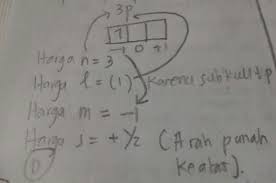 3p
1
-1 0 +1
Harga n = 3
Harga l = (1) Karena subkulit p
Harga m = -1
Harga s = + 1/2 (Arah panah
keatas).
D